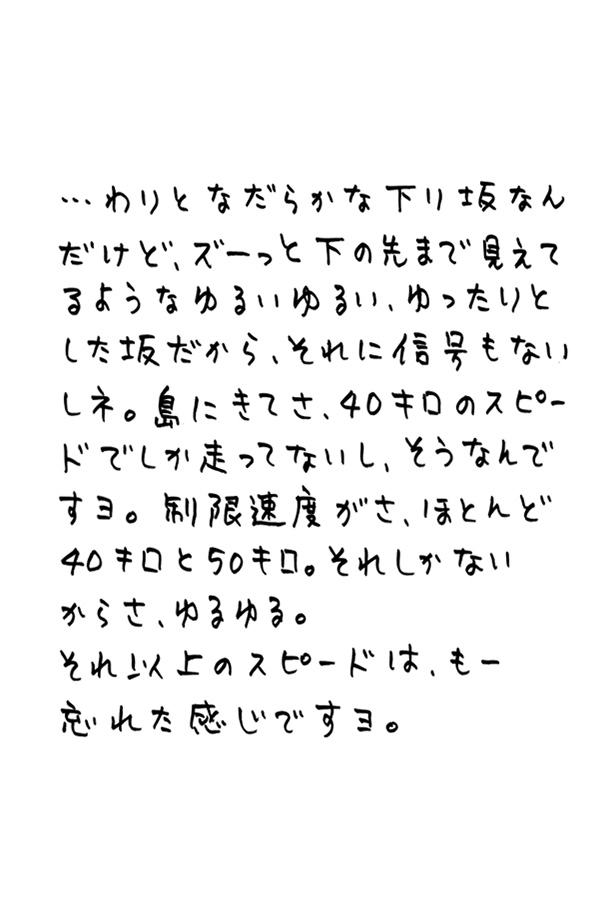 …わりとなだらかな下り坂なん
だけど、ズーっと下の先まで見えて
るようなゆるいゆるい、ゆったりと
した坂だから、それに信号もない
しネ。島にきてさ、40キロのスピー
ドでしか走ってないし、そうなんで
すヨ。制限速度がさ、ほとんど
40キロと50キロ。それしかない
からさ、ゆるゆる。
それ以上のスピードは、もー
忘れた感じですヨ。